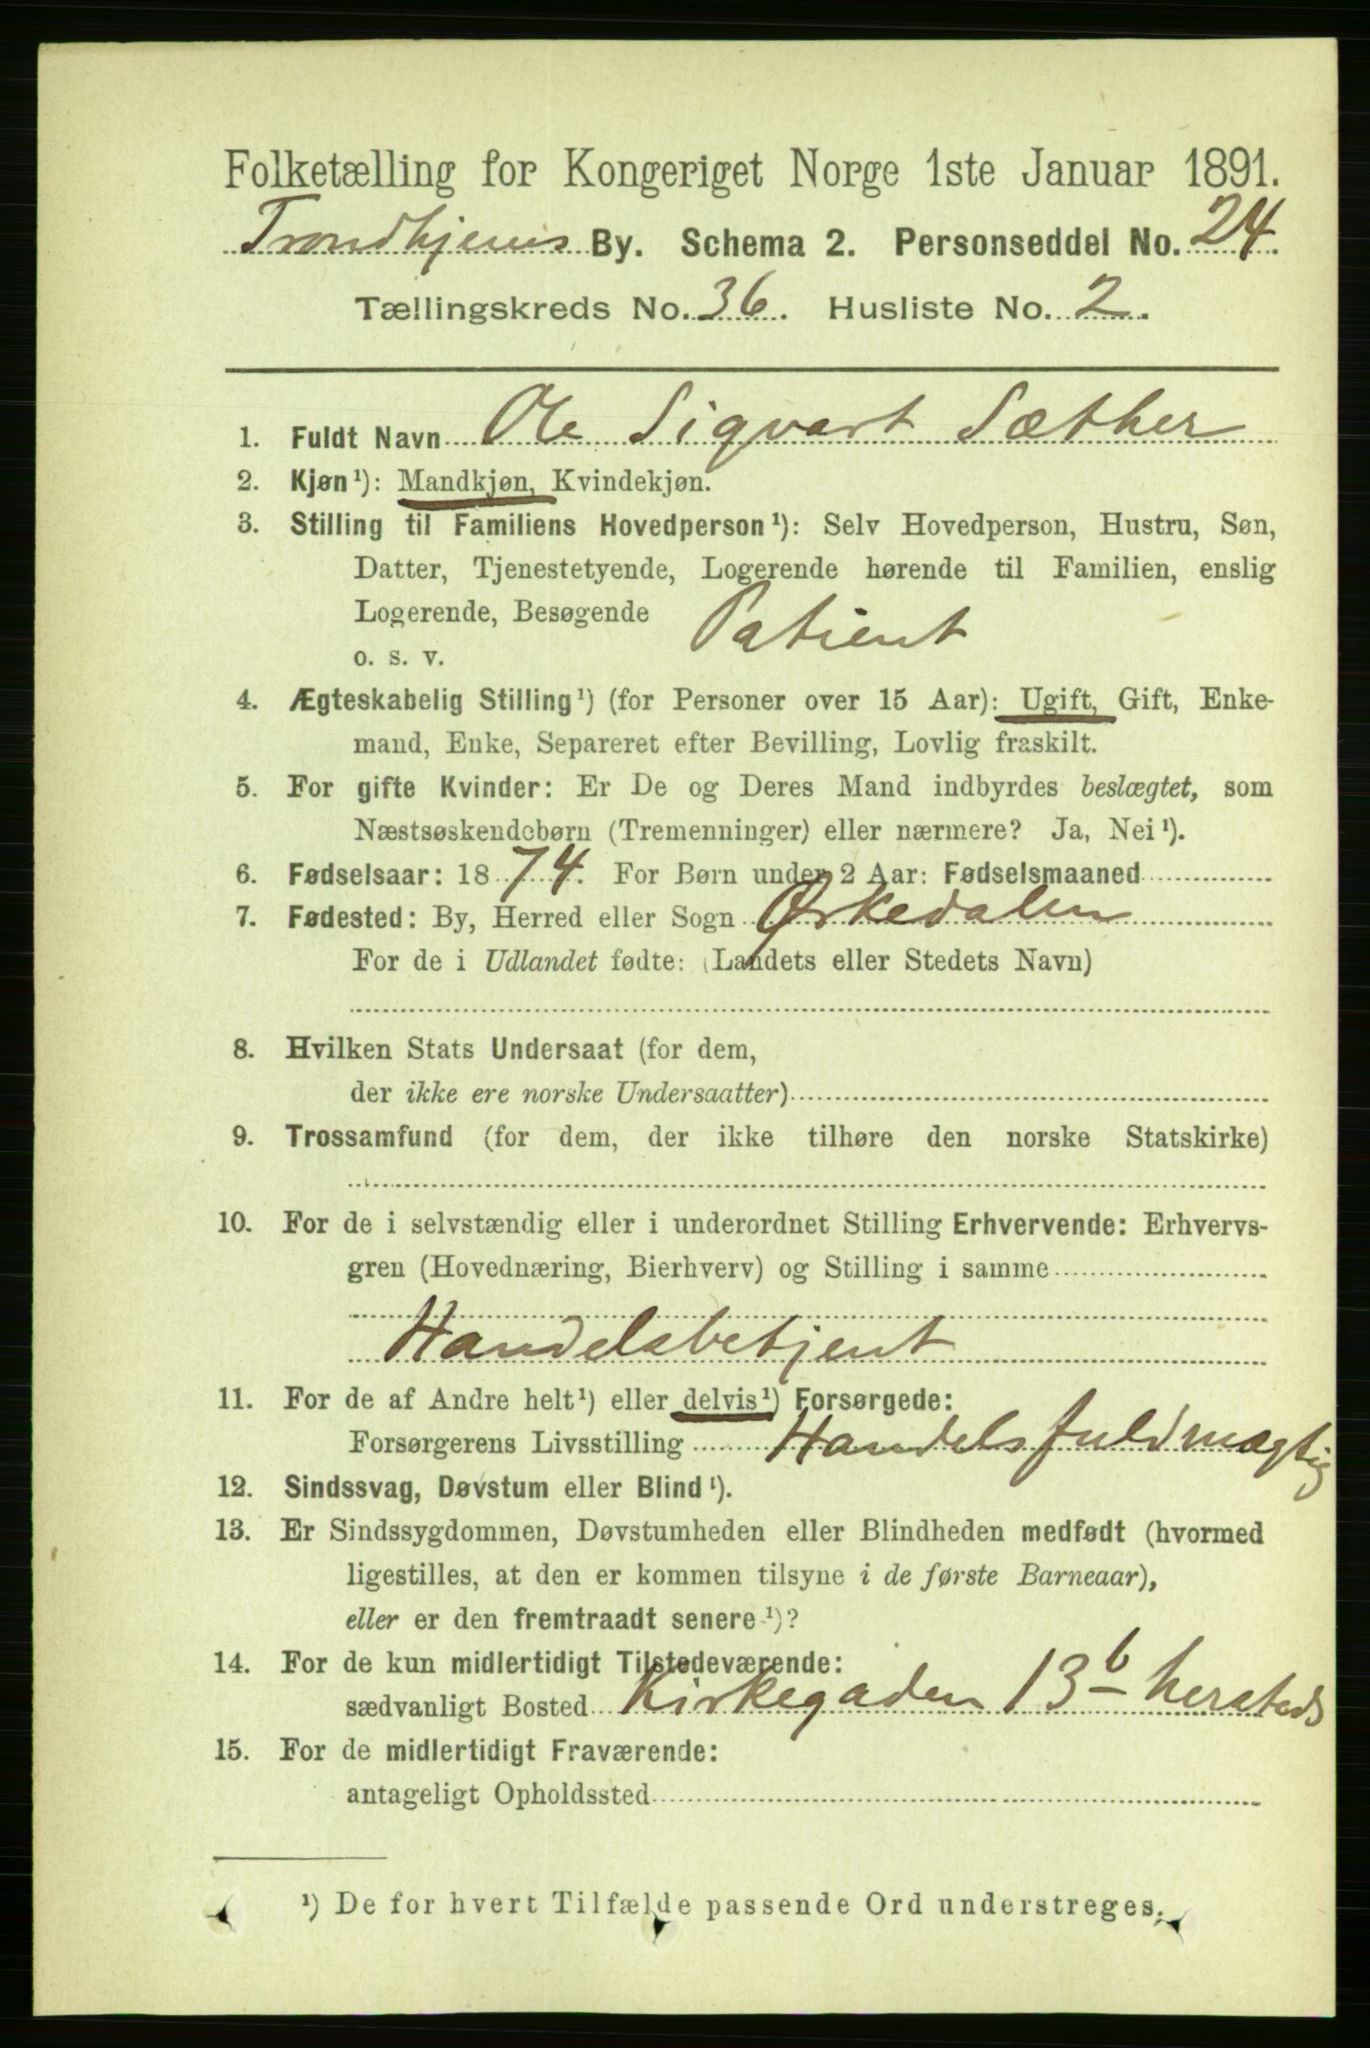 Folketælling for Kongeriget Norge 1ste Januar 1891.
Trondhjems By. Schema 2. Personseddel No. 24.
Tællingskreds No. 36. Husliste No. 2.
1. Fuldt Navn Ole Sigvart Sæther
2. Kjøn¹): Mandkjøn, Kvindekjøn.
3. Stilling til Familiens Hovedperson¹): Selv Hovedperson, Hustru, Søn,
Datter, Tjenestetyende, Logerende hørende til Familien, enslig
Logerende, Besøgende Patient
o. s. v.
4. Ægteskabelig Stilling¹) (for Personer over 15 Aar): Ugift, Gift, Enke-
mand, Enke, Separeret efter Bevilling, Lovlig fraskilt.
5. For gifte Kvinder: Er De og Deres Mand indbyrdes beslægtet, som
Næstsøskendebørn (Tremenninger) eller nærmere? Ja, Nei¹).
6. Fødselsaar: 1874. For Børn under 2 Aar: Fødselsmaaned
7. Fødested: By, Herred eller Sogn Ørkedalen
For de i Udlandet fødte: (Landets eller Stedets Navn)
8. Hvilken Stats Undersaat (for dem,
der ikke ere norske Undersaatter)
9. Trossamfund (for dem, der ikke tilhøre den norske Statskirke)
10. For de i selvstændig eller i underordnet Stilling Erhvervende: Erhvervs-
gren (Hovednæring, Bierhverv) og Stilling i samme
Handelsbetjent
11. For de af Andre helt¹) eller delvis¹) Forsørgede:
Forsørgerens Livsstilling Handelsfuldmægtig
12. Sindssvag, Døvstum eller Blind¹).
13. Er Sindssygdommen, Døvstumheden eller Blindheden medfødt (hvormed
ligestilles, at den er kommen tilsyne i de første Barneaar),
eller er den fremtraadt senere¹)?
14. For de kun midlertidigt Tilstedeværende:
sædvanligt Bosted Kirkegaden 13b hersteds
15. For de midlertidigt Fraværende:
antageligt Opholdssted
¹) De for hvert Tilfælde passende Ord understreges.